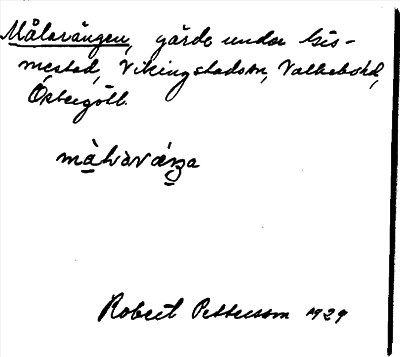 Målavängen, gärde under Gis-
mestad, Vikingstads sn, Valkebo hd,
Östergötl.
målvaväŋa
Robert Pettersson 1929